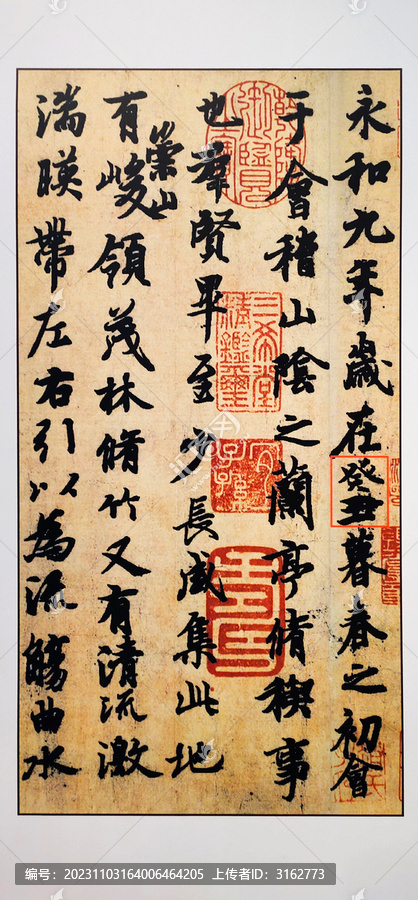 永和九年歲在癸丑暮春之初會
于會稽山陰之蘭亭脩稧事
也羣賢畢至少長咸集此地
有崇山峻領茂林脩竹又有清流激
湍暎帶左右引以為流觴曲水
三希堂精鑑璽
宜子孫
编号：20231103164006464205 上传者ID：3162773